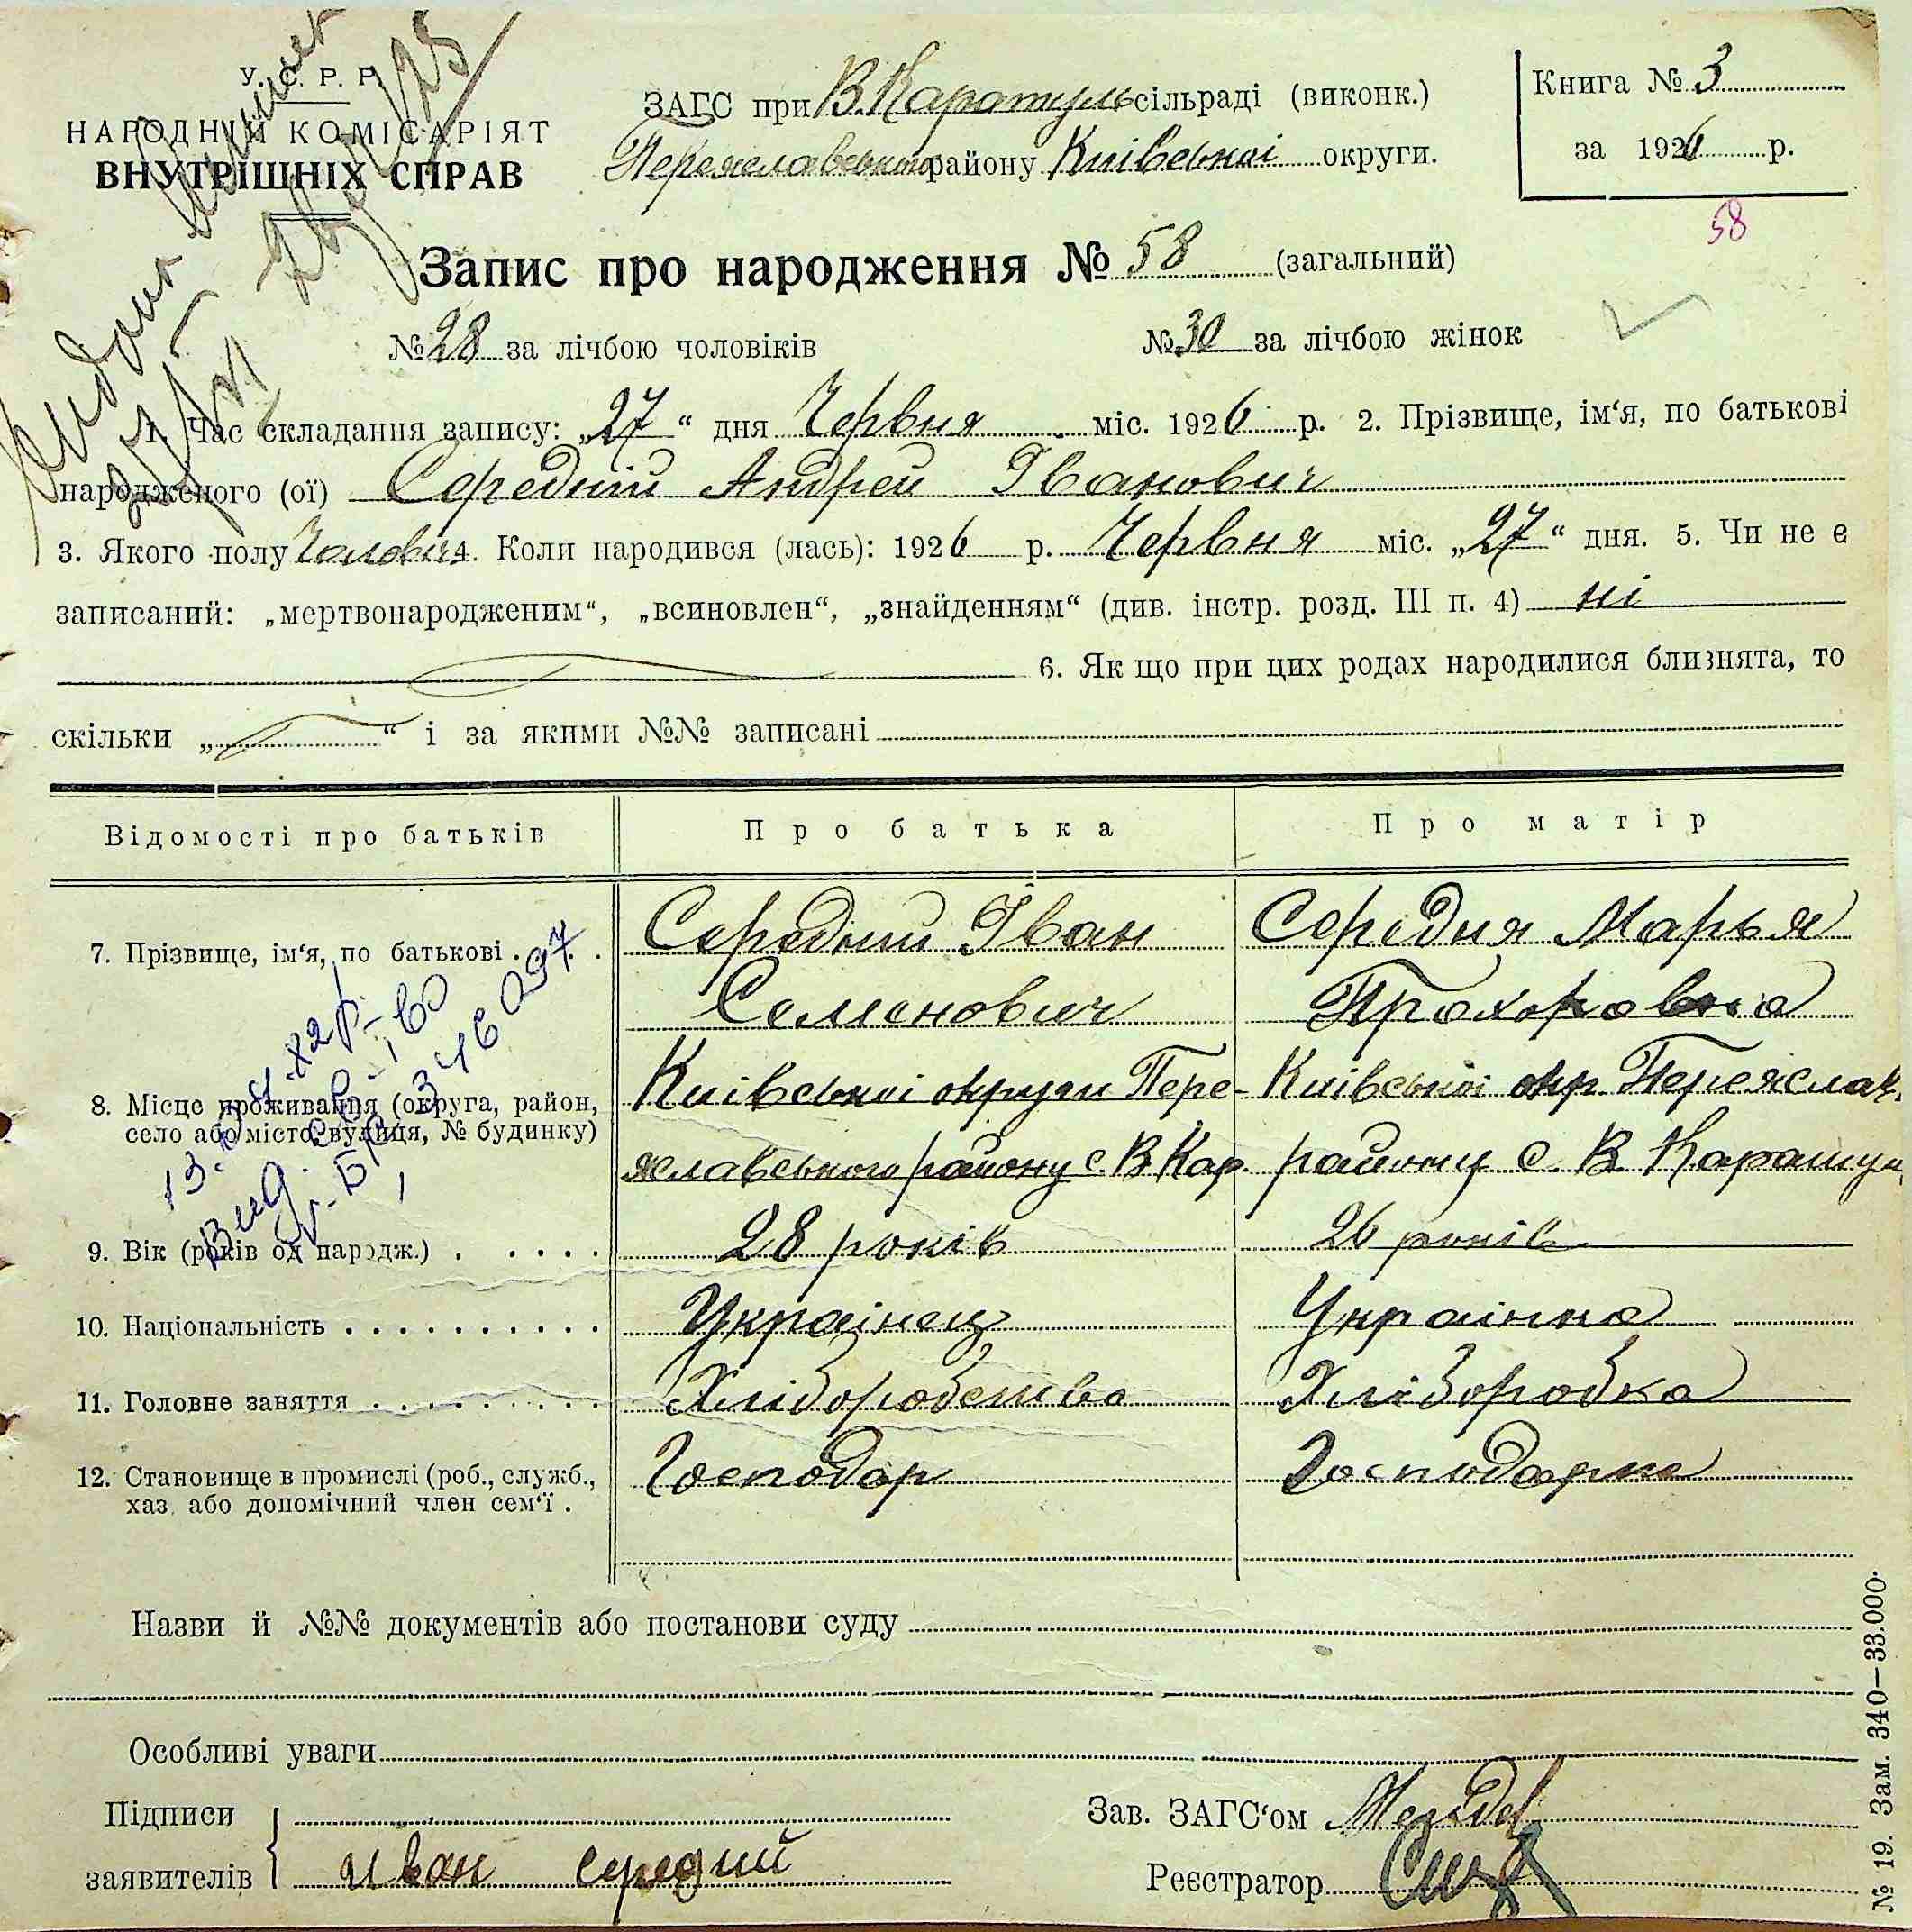 У. С. Р. Р.
НАРОДНІЙ КОМІСАРІЯТ
ВНУТРІШНІХ СПРАВ
ЗАГС при В. Каратуль сільраді (виконк.)
Переяславського району Київської округи.
Книга № 3
за 1926 р.
58
Запис про народження № 58 (загальний)
№ 28 за лічбою чоловіків № 30 за лічбою жінок
1. Час складання запису: „27“ дня Червня міс. 1926 р. 2. Прізвище, ім‘я, по батькові
народженого (ої) Середній Андрей Іванович
3. Якого полу Чоловіч. 4. Коли народився (лась): 1926 р. Червня міс. „27“ дня. 5. Чи не є
записаний: „мертвонародженим“, „всиновлен“, „знайденням“ (див. інстр. розд. III п. 4) ні
6. Як що при цих родах народилися близнята, то
скільки „ “ і за якими №№ записані
Відомості про батьків Про батька Про матір
7. Прізвище, ім‘я, по батькові . . . Середний Іван Середня Марья
Семенович Прохоровна
8. Місце проживання (округа, район, Київської округи Пере- Київської окр. Переяслав.
село або місто, вулиця, № будинку) яславського району с. В Кар. району с. В. Каратуль
9. Вік (років од народж.) . . . . . 28 років 26 років
10. Національність . . . . . . . . . . Українец Українка
11. Головне заняття . . . . . . . . . Хліборобство Хліборобка
12. Становище в промислі (роб., служб., Господар Господарка
хаз. або допомічний член сем‘ї .
Назви й №№ документів або постанови суду
Особливі уваги
Підписи
заявителів Иван середний
Зав. ЗАГС‘ом
Реєстратор
№ 19. Зам. 340—33.000.